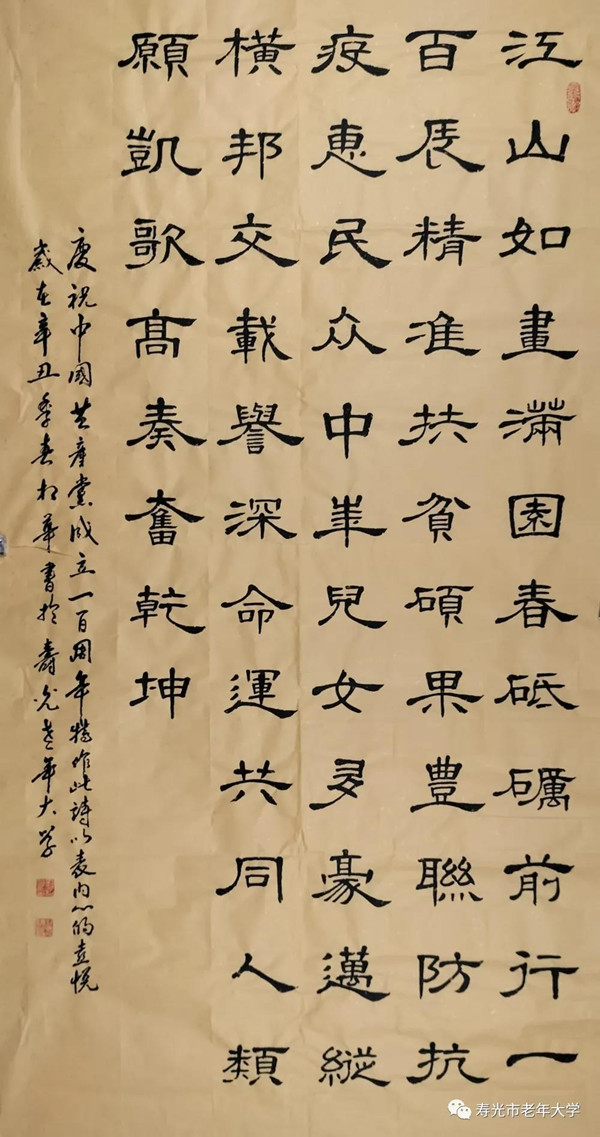 江山如畫滿園春砥礪前行一
百辰精准扶貧碩果豊聯防抗
疫惠民众中華兒女多豪邁縱
橫邦交載譽深命運共同人類
願凱歌高奏奮乾坤
慶祝中國共產黨成立一百周年特作此詩以表內心的喜悅
歲在辛丑季春華書於壽光老年大学
寿光市老年大学